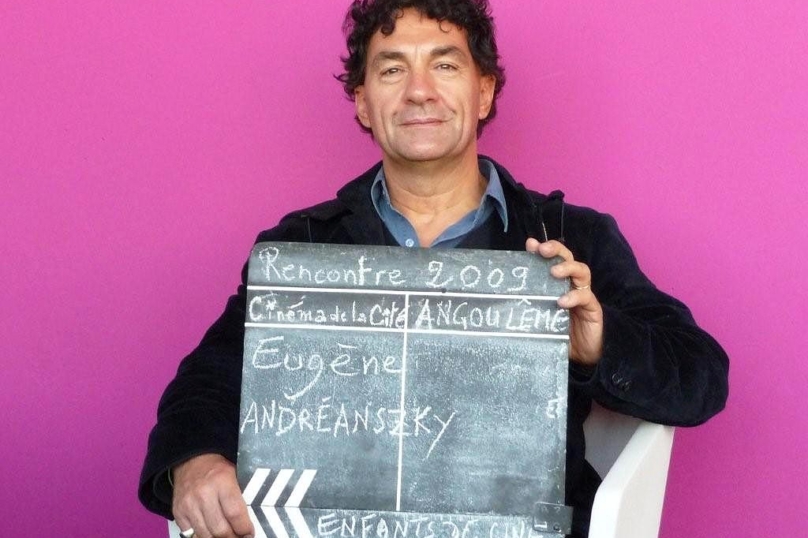 Rencontre 2009
Cinéma de la Cité ANGOULÊME
Eugène
ANDRÉANSZKY
ENFANTS DE CINÉ